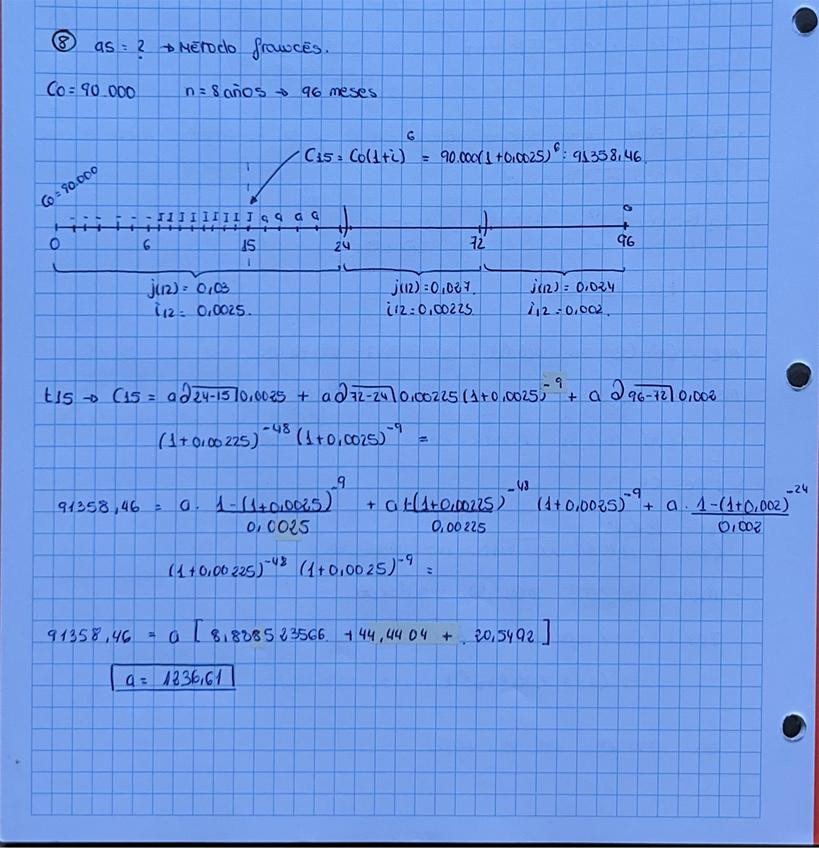 ⑧ as = ? → Método francés.
C0 = 90.000 n = 8 años → 96 meses
C15 = C0(1+i)^6 = 90.000(1+0,0025)^6 : 91358,46.
C0 = 90.000
- - - - - - I I I I I I I I I a a a a
0 6 15 24 72 96
j(12) = 0,03 j(12) = 0,027. j(12) = 0,024
i12 = 0,0025. i12 = 0,00225 i12 = 0,002.
t15 → C15 = a∂24-15|0,0025 + a∂72-24|0,00225 (1+0,0025)^-9 + a ∂96-72|0,002
(1+0,00225)^-48 (1+0,0025)^-9 =
91358,46 = a. 1-(1+0,0025)^-9 / 0,0025 + a 1-(1+0,00225)^-48 / 0,00225 (1+0,0025)^-9 + a. 1-(1+0,002)^-24 / 0,002
(1+0,00225)^-48 (1+0,0025)^-9 =
91358,46 = a [8,888523566 + 44,4404 + 20,5492]
a = 1236,61